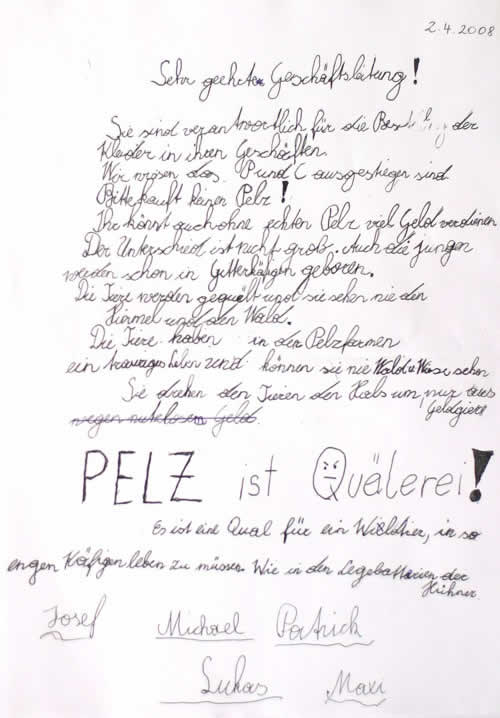 2.4.2008
Sehr geehrte Geschäftsleitung!
Sie sind verantwortlich für die der
Kleider in ihren Geschäften.
Wir das P und C ausgestiegen sind
Bitte kauft keinen Pelz!
Ihr könnt auch ohne echten Pelz viel Geld verdienen
Der Unterschied ist nicht groß. Auch die jungen
werden schon in Gitterkäfigen geboren.
Die Tiere werden gequält und sie sehen nie den
Himmel und den Wald.
Die Tiere haben in der Pelzfarmen
ein trauriges Leben und können sie nie Wald u. Wiese sehen
Sie drehen den Tieren den Hals um nur aus
Geldgier
wegen nutzlosem Geld.
PELZ ist Quälerei!
Es ist eine Qual für ein Wildtier, in so
engen Käfigen leben zu müssen. Wie in den Legebatterien der
Hühner.
Josef Michael Patrick
Lukas Maxi